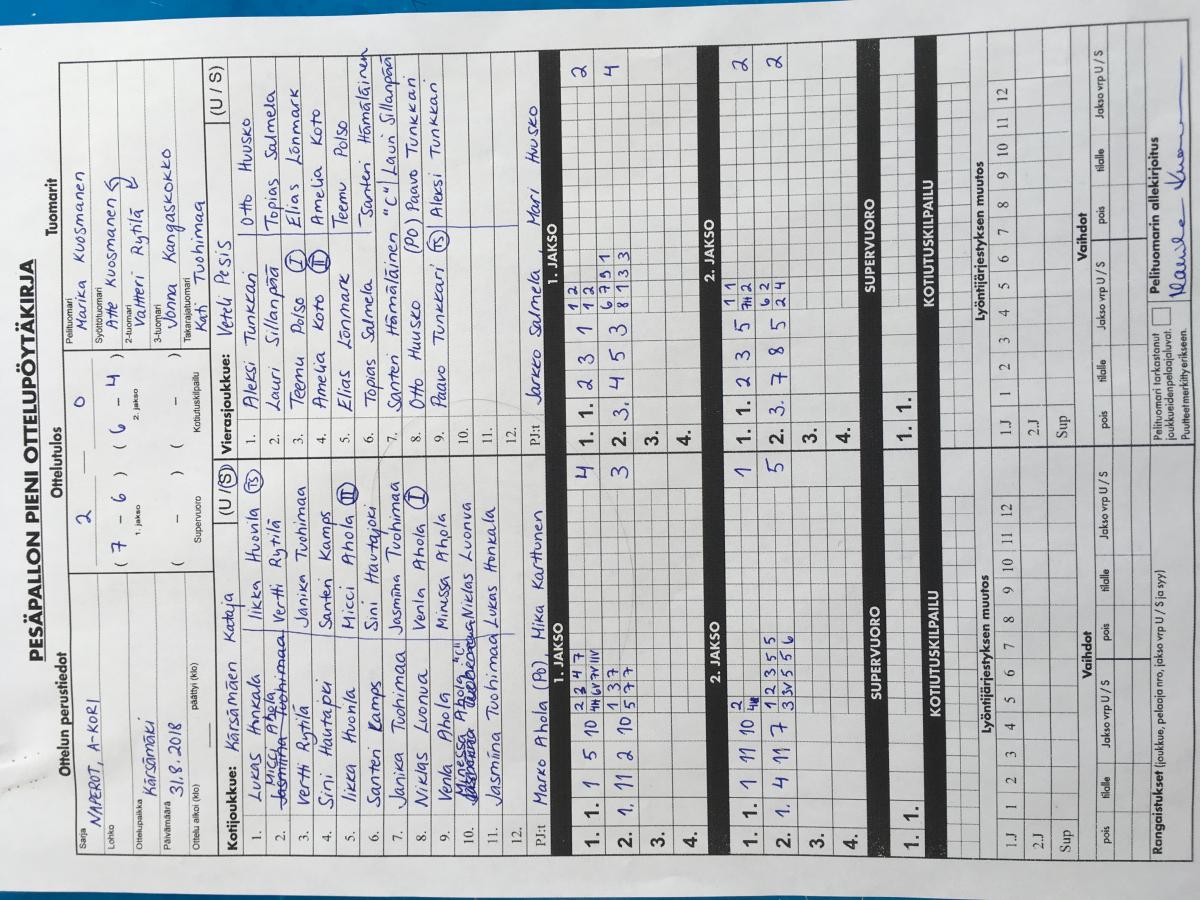 PESÄPALLON PIENI OTTELUPÖYTÄKIRJA
Ottelun perustiedot Ottelutulos Tuomarit
Sarja NAPEROT, A-KORI
Lohko
Ottelupaikka Kärsämäki
Päivämäärä 31.8.2018
Ottelu alkoi (klo) päättyi (klo)
2 – 0
( 7 – 6 ) ( 6 – 4 )
1. jakso 2. jakso
( – ) ( – )
Supervuoro Kotiutuskilpailu
Pelituomari Marika Kuosmanen
Syöttötuomari Atte Kuosmanen
2-tuomari Valtteri Rytilä
3-tuomari Jonna Kangaskokko
Takarajatuomari Kati Tuohimaa
Kotijoukkue: Kärsämäen Kataja (U / S)
1. Lukas Honkala Iikka Huovila TS
2. Jasmiina Tuohimaa Micci Ahola Vertti Rytilä
3. Vertti Rytilä Janika Tuohimaa
4. Sini Hautajoki Santeri Kamps
5. Iikka Huovila Micci Ahola II
6. Santeri Kamps Sini Hautajoki
7. Janika Tuohimaa Jasmiina Tuohimaa
8. Niklas Luonua Venla Ahola I
9. Venla Ahola Minessa Ahola
10. Minessa Ahola "C" Niklas Luonua
11. Jasmiina Tuohimaa Lukas Honkala
12.
PJ:t Marko Ahola (PO), Mika Karttunen
Vierasjoukkue: Veteli Pesis (U / S)
1. Aleksi Tunkkari Otto Huusko
2. Lauri Sillanpää Topias Salmela
3. Teemu Polso I Elias Lönmark
4. Amelia Koto II Amelia Koto
5. Elias Lönmark Teemu Polso
6. Topias Salmela Santeri Hämäläinen
7. Santeri Hämäläinen "C" Lauri Sillanpää
8. Otto Huusko (PO) Paavo Tunkkari
9. Paavo Tunkkari TS Aleksi Tunkkari
10.
11.
12.
PJ:t Jarkko Salmela, Mari Huusko
1. JAKSO 1. JAKSO
1. 1. 1 5 10 2 3 4 7 4
1. 1. 2 3 1 1 2 1 2 2
2. 1. 11 2 10 1 3 7 5 7 7 3
2. 3. 4 5 3 6 7 9 1 8 1 3 3 4
3. 3.
4. 4.
2. JAKSO 2. JAKSO
1. 1. 1 11 10 2 1
1. 1. 2 3 5 1 1 7H 2 2
2. 1. 4 11 7 1 2 3 5 5 3 3V 5 5 6 5
2. 3. 7 8 5 6 2 2 4 2
3. 3.
4. 4.
SUPERVUORO SUPERVUORO
1. 1. 1. 1.
KOTIUTUSKILPAILU KOTIUTUSKILPAILU
Lyöntijärjestyksen muutos Lyöntijärjestyksen muutos
1.J 1 2 3 4 5 6 7 8 9 10 11 12 1.J 1 2 3 4 5 6 7 8 9 10 11 12
2.J 2.J
Sup Sup
Vaihdot Vaihdot
pois tilalle Jakso vrp U / S pois tilalle Jakso vrp U / S pois tilalle Jakso vrp U / S pois tilalle Jakso vrp U / S
Rangaistukset (joukkue, pelaaja nro, jakso vrp U / S ja syy)
Pelituomari tarkastanut
joukkueidenpelaajaluvat.
Puutteet merkitty erikseen.
Pelituomarin allekirjoitus